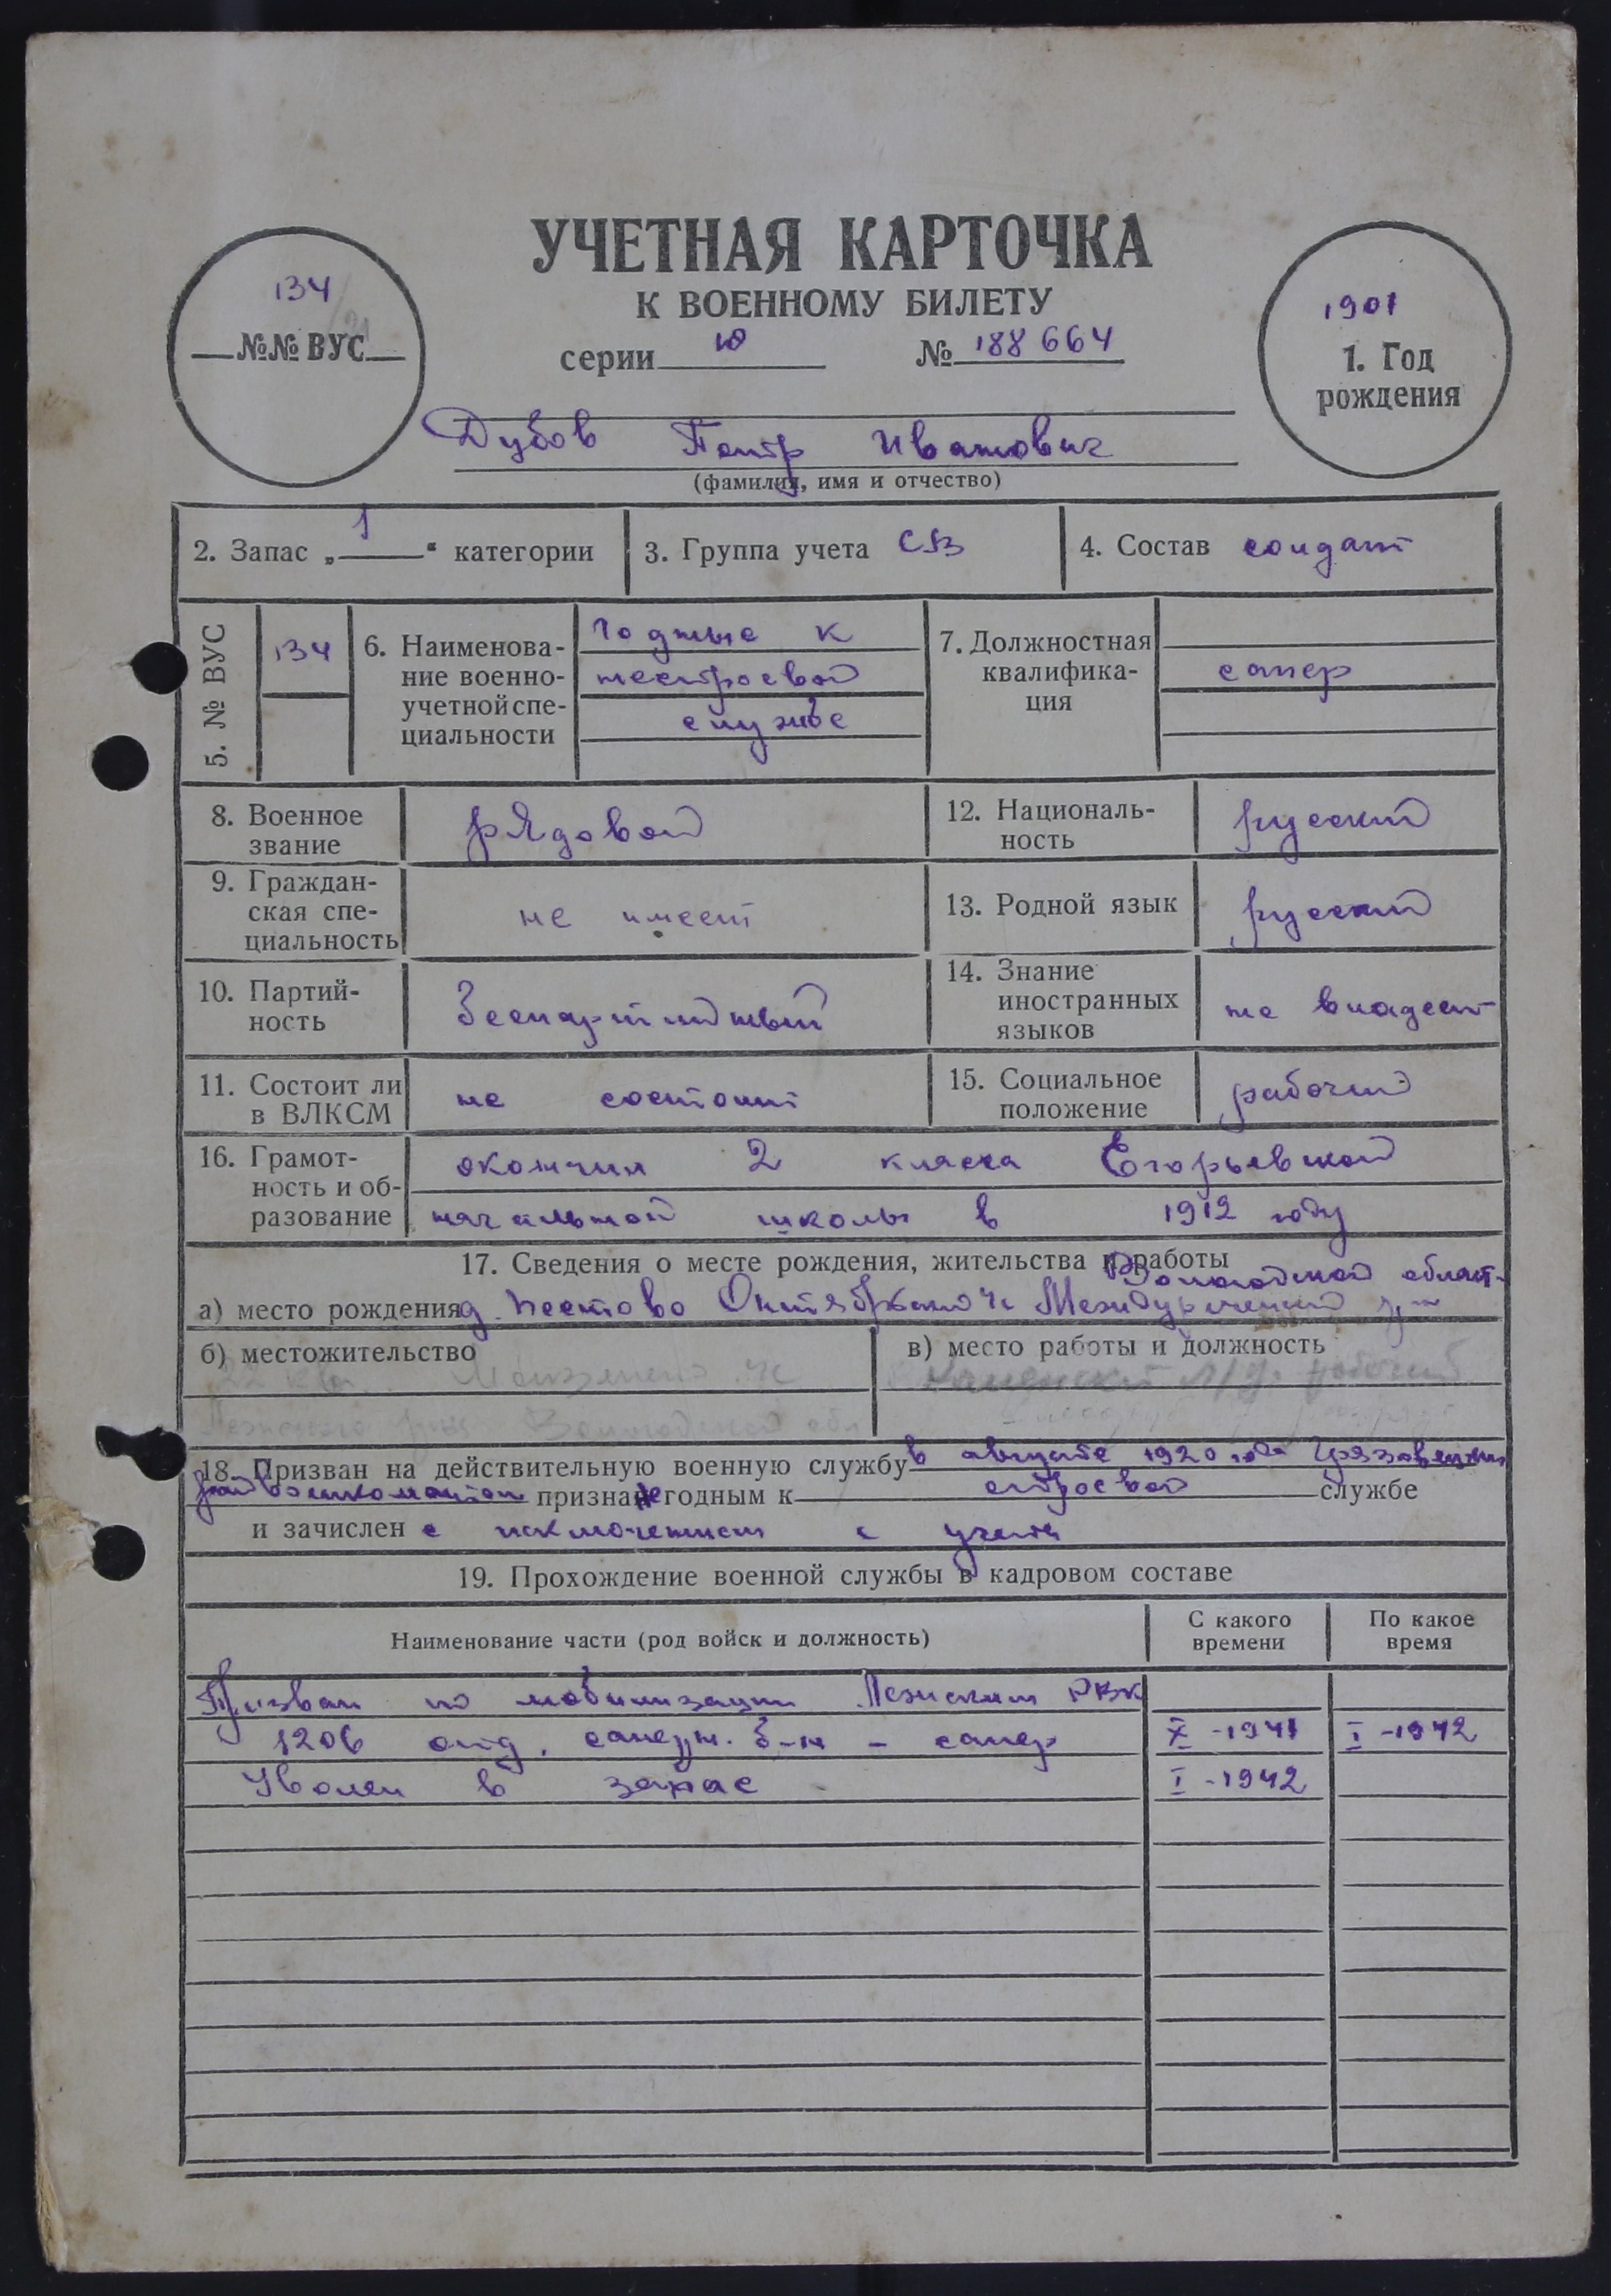 УЧЕТНАЯ КАРТОЧКА
К ВОЕННОМУ БИЛЕТУ
серии Ю № 188664
134
№№ ВУС
1901
1. Год
рождения
Дубов Петр Иванович
(фамилия, имя и отчество)
2. Запас „1“ категории
3. Группа учета СВ
4. Состав солдат
5. № ВУС
134
6. Наименова-
ние военно-
учетной спе-
циальности
годные к
нестроевой
службе
7. Должностная
квалифика-
ция
сапер
8. Военное
звание
рядовой
12. Националь-
ность
русский
9. Граждан-
ская спе-
циальность
не имеет
13. Родной язык
русский
10. Партий-
ность
беспартийный
14. Знание
иностранных
языков
не владеет
11. Состоит ли
в ВЛКСМ
не состоит
15. Социальное
положение
рабочий
16. Грамот-
ность и об-
разование
окончил 2 класса Егорьевской
начальной школы в 1912 году
17. Сведения о месте рождения, жительства и работы
Вологодской област.
а) место рождения д. Пестово Октябрьского с/с Междуреченский р-н
б) местожительство
22 кв.
Вологодской обл
в) место работы и должность
рабочий
18. Призван на действительную военную службу в августе 1920 года Грязовецким
райвоенкоматом признан не годным к строевой службе
и зачислен с исключением с учета
19. Прохождение военной службы в кадровом составе
Наименование части (род войск и должность)
С какого
времени
По какое
время
Призван по мобилизации Лежским РВК
1206 отд. саперн. б-н - сапер X-1941 I-1942
Уволен в запас I-1942